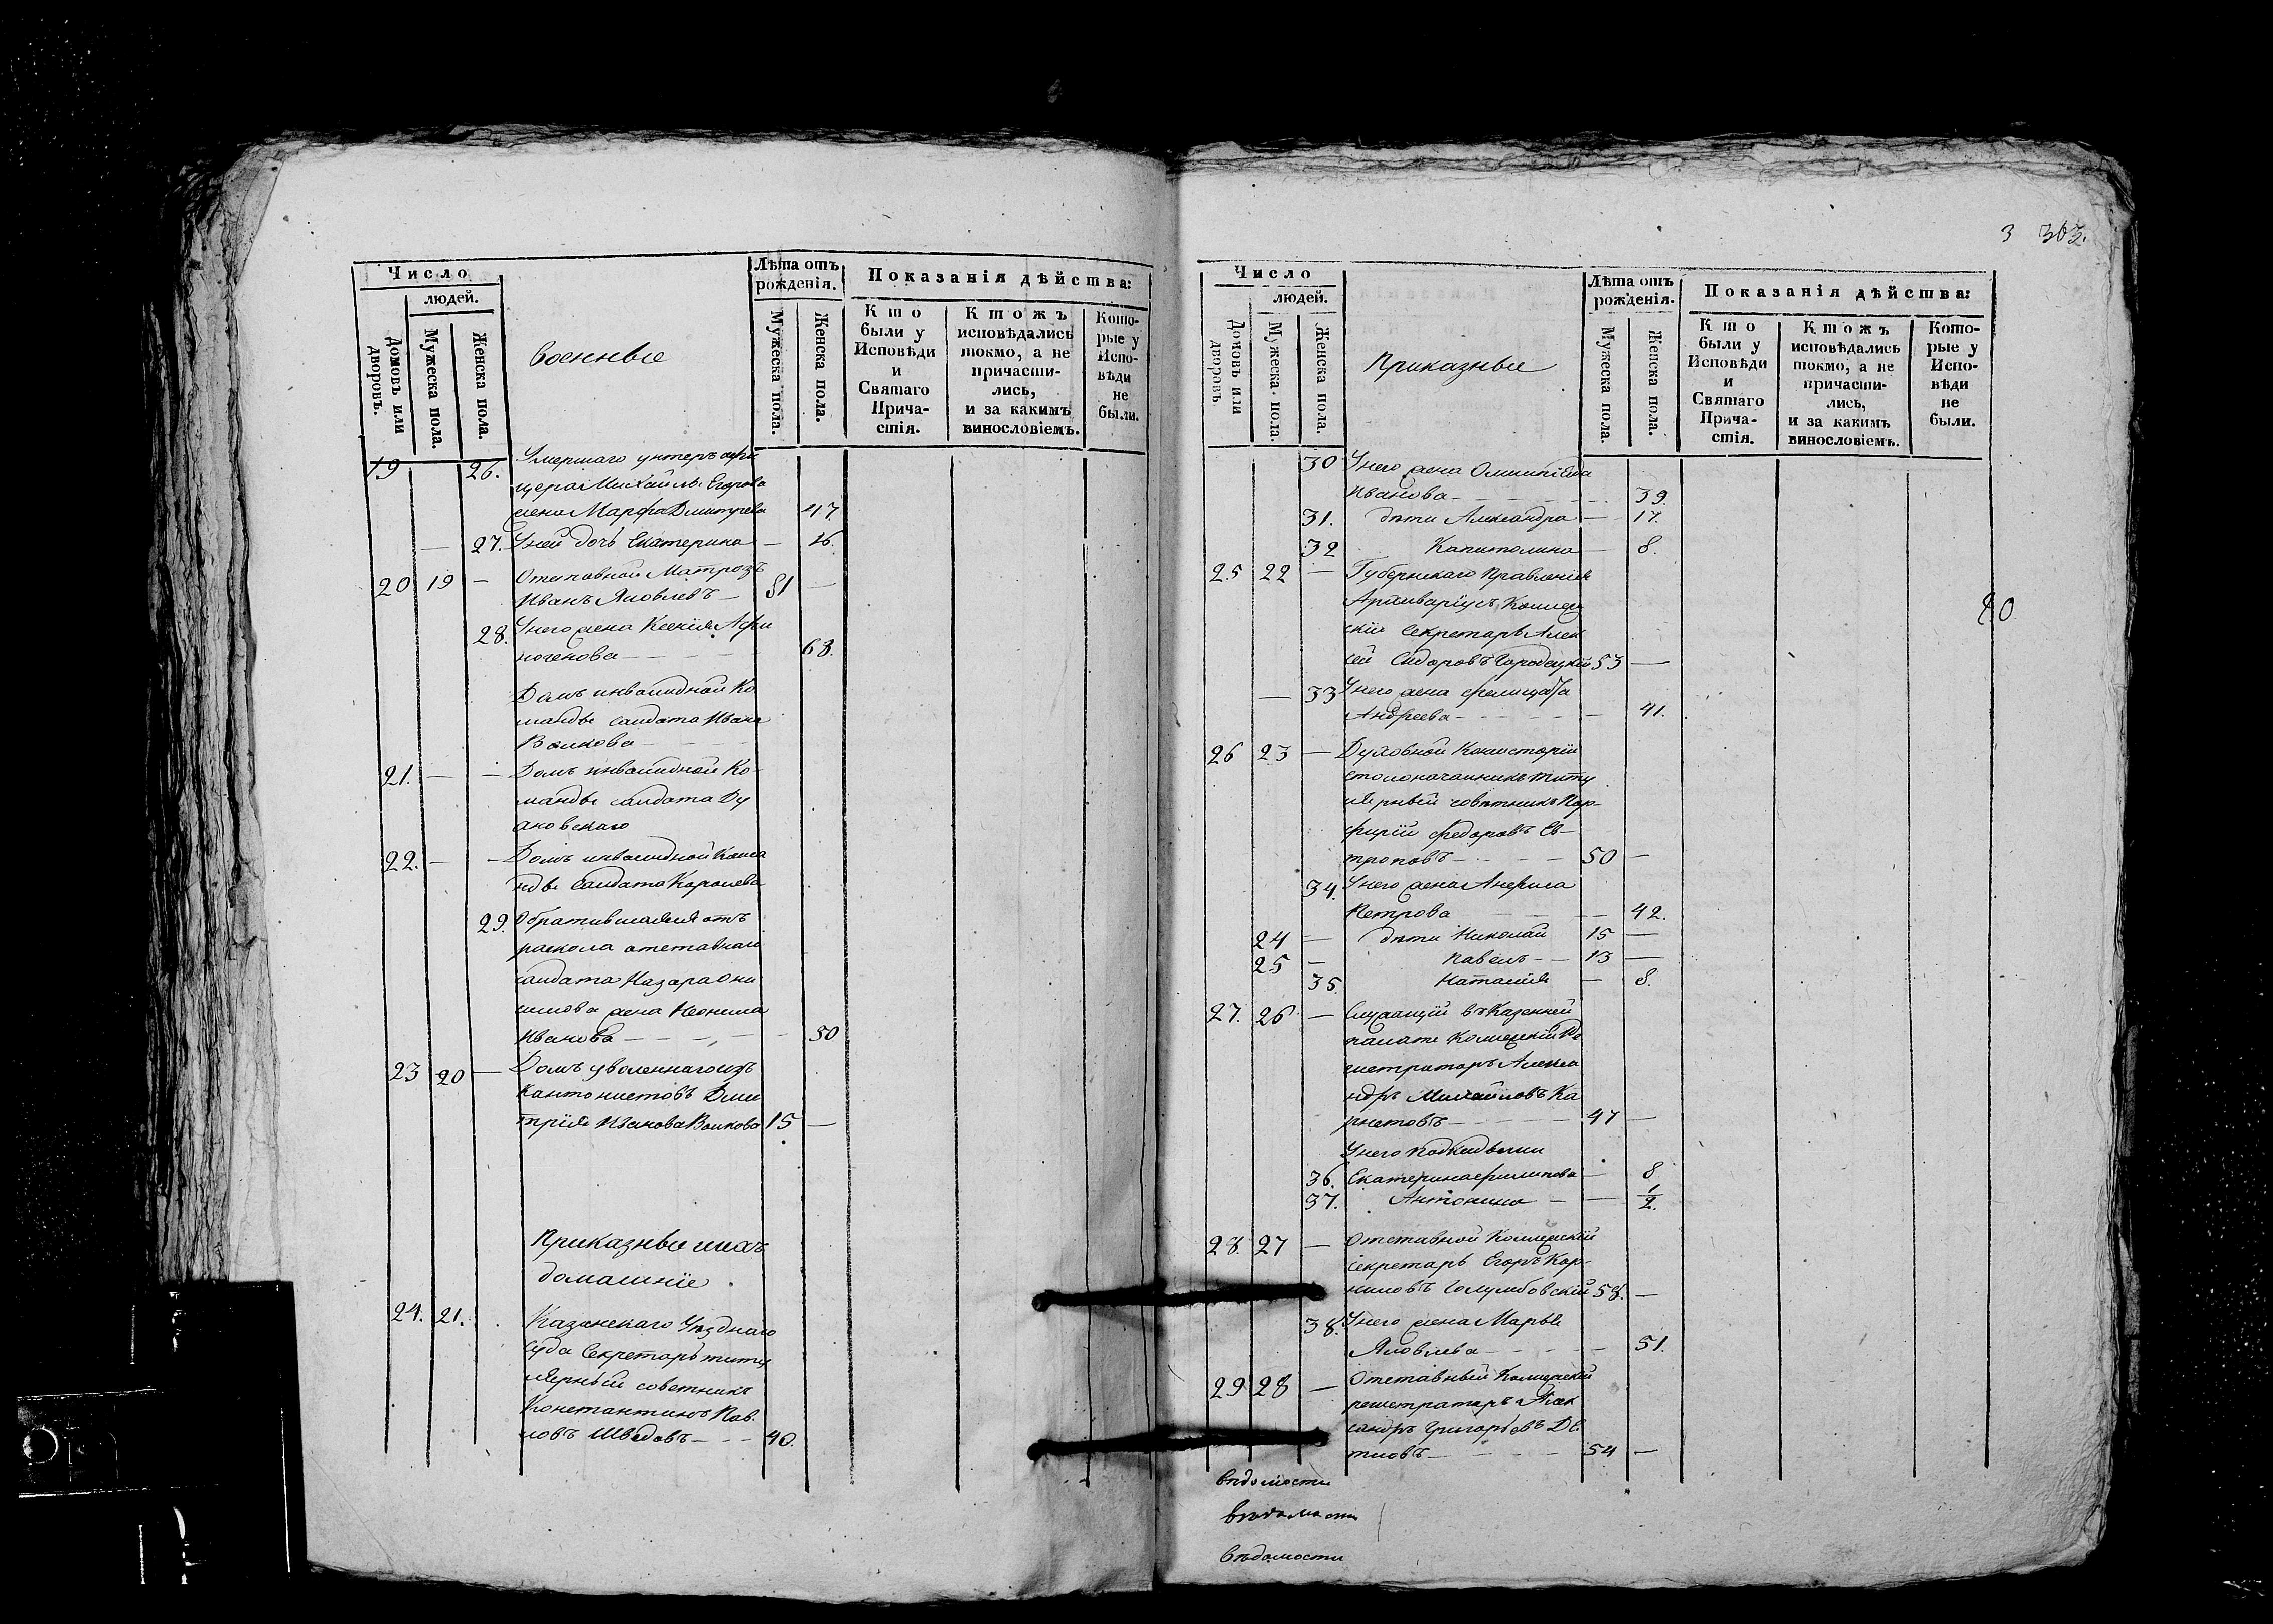 Число
людей.
Домовъ или дворовъ.
Мужеска пола.
Женска пола.
Военные
Лѣта отъ рожденія.
Мужеска пола.
Женска пола.
Показанія дѣйства:
Кто были у Исповѣди и Святаго Причастія.
Ктожъ исповѣдались токмо, а не причастились, и за какимъ винословіемъ.
Которые у Исповѣди не были.
19 26. Умершаго унтеръ офи
цера Михайлы Егорова
жена Марфа Дмитрева 47
— 27. У ней дочь Екатерина — 16.
20 19 — Отставной Матрозъ
Иванъ Яковлевъ — 81 —
28. У него жена Ксенія Афи
ногенова 68.
Домъ инвалидной Ко
манды салдата Ивана
Волкова
21. — — Домъ инвалидной Ко-
манды салдата Ду
ановскаго
22. — — Домъ инвалидной Кома
нды Салдата Королева
29. Обратившаяся отъ
раскола отставнаго
салдата Назара Они
симова жена Неонила
Иванова 50
23 20 — Домъ уволеннаго изъ
Кантонистовъ Дми
трія Иванова Волкова 15 —
Приказные и ихъ
домашніе
24. 21. Казанскаго Уѣзднаго
Суда Секретарь титу
лярный советникъ
Константинъ Пав-
ловъ Шведовъ 40.
3 303.
Число
людей.
Домовъ или дворовъ.
Мужеска пола.
Женска пола.
Приказные
Лѣта отъ рожденія.
Мужеска пола.
Женска пола.
Показанія дѣйства:
Кто были у Исповѣди и Святаго Причастія.
Ктожъ исповѣдались токмо, а не причастились, и за какимъ винословіемъ.
Которые у Исповѣди не были.
30 У него жена Олимпіада
Иванова 39.
31. дѣти Александра — 17.
32 Капитолина — 8.
25 22 — Губернскаго Правленія
Архиваріусъ Коллеж
скій Секретарь Алек
сей Сидоровъ Городецкій 53 —
— 33 У него жена Фелицата
Андреева — 41.
26 23 — Духовной Консисторіи
столоначалникъ титу
лярный совѣтникъ Пор-
фирій Федоровъ Ев-
троповъ 50 —
34. У него жена Анфиса
Петрова — 42.
24 — дѣти Николай 15 —
25 — Павелъ 13 —
35. Наталія — 8.
27. 26 — Служащій въ Казенной
палате Коллежскій Ре
гистраторъ Алекса
ндръ Михайловъ Ка
рнетовъ 47 —
У него подкидыши
36. Екатерина Филипова — 8
37. Антонина — 1/2.
28 27 — Отставной Коллежскій
секретарь Егоръ Кор-
ниловъ Голумбовскій 58. —
38. У него жена Марья
Яковлева — 51.
29 28 — Отставный Коллежскій
регистраторъ Алек
сандръ Григорьевъ
54 —
вѣдомости
вѣдомости
вѣдомости